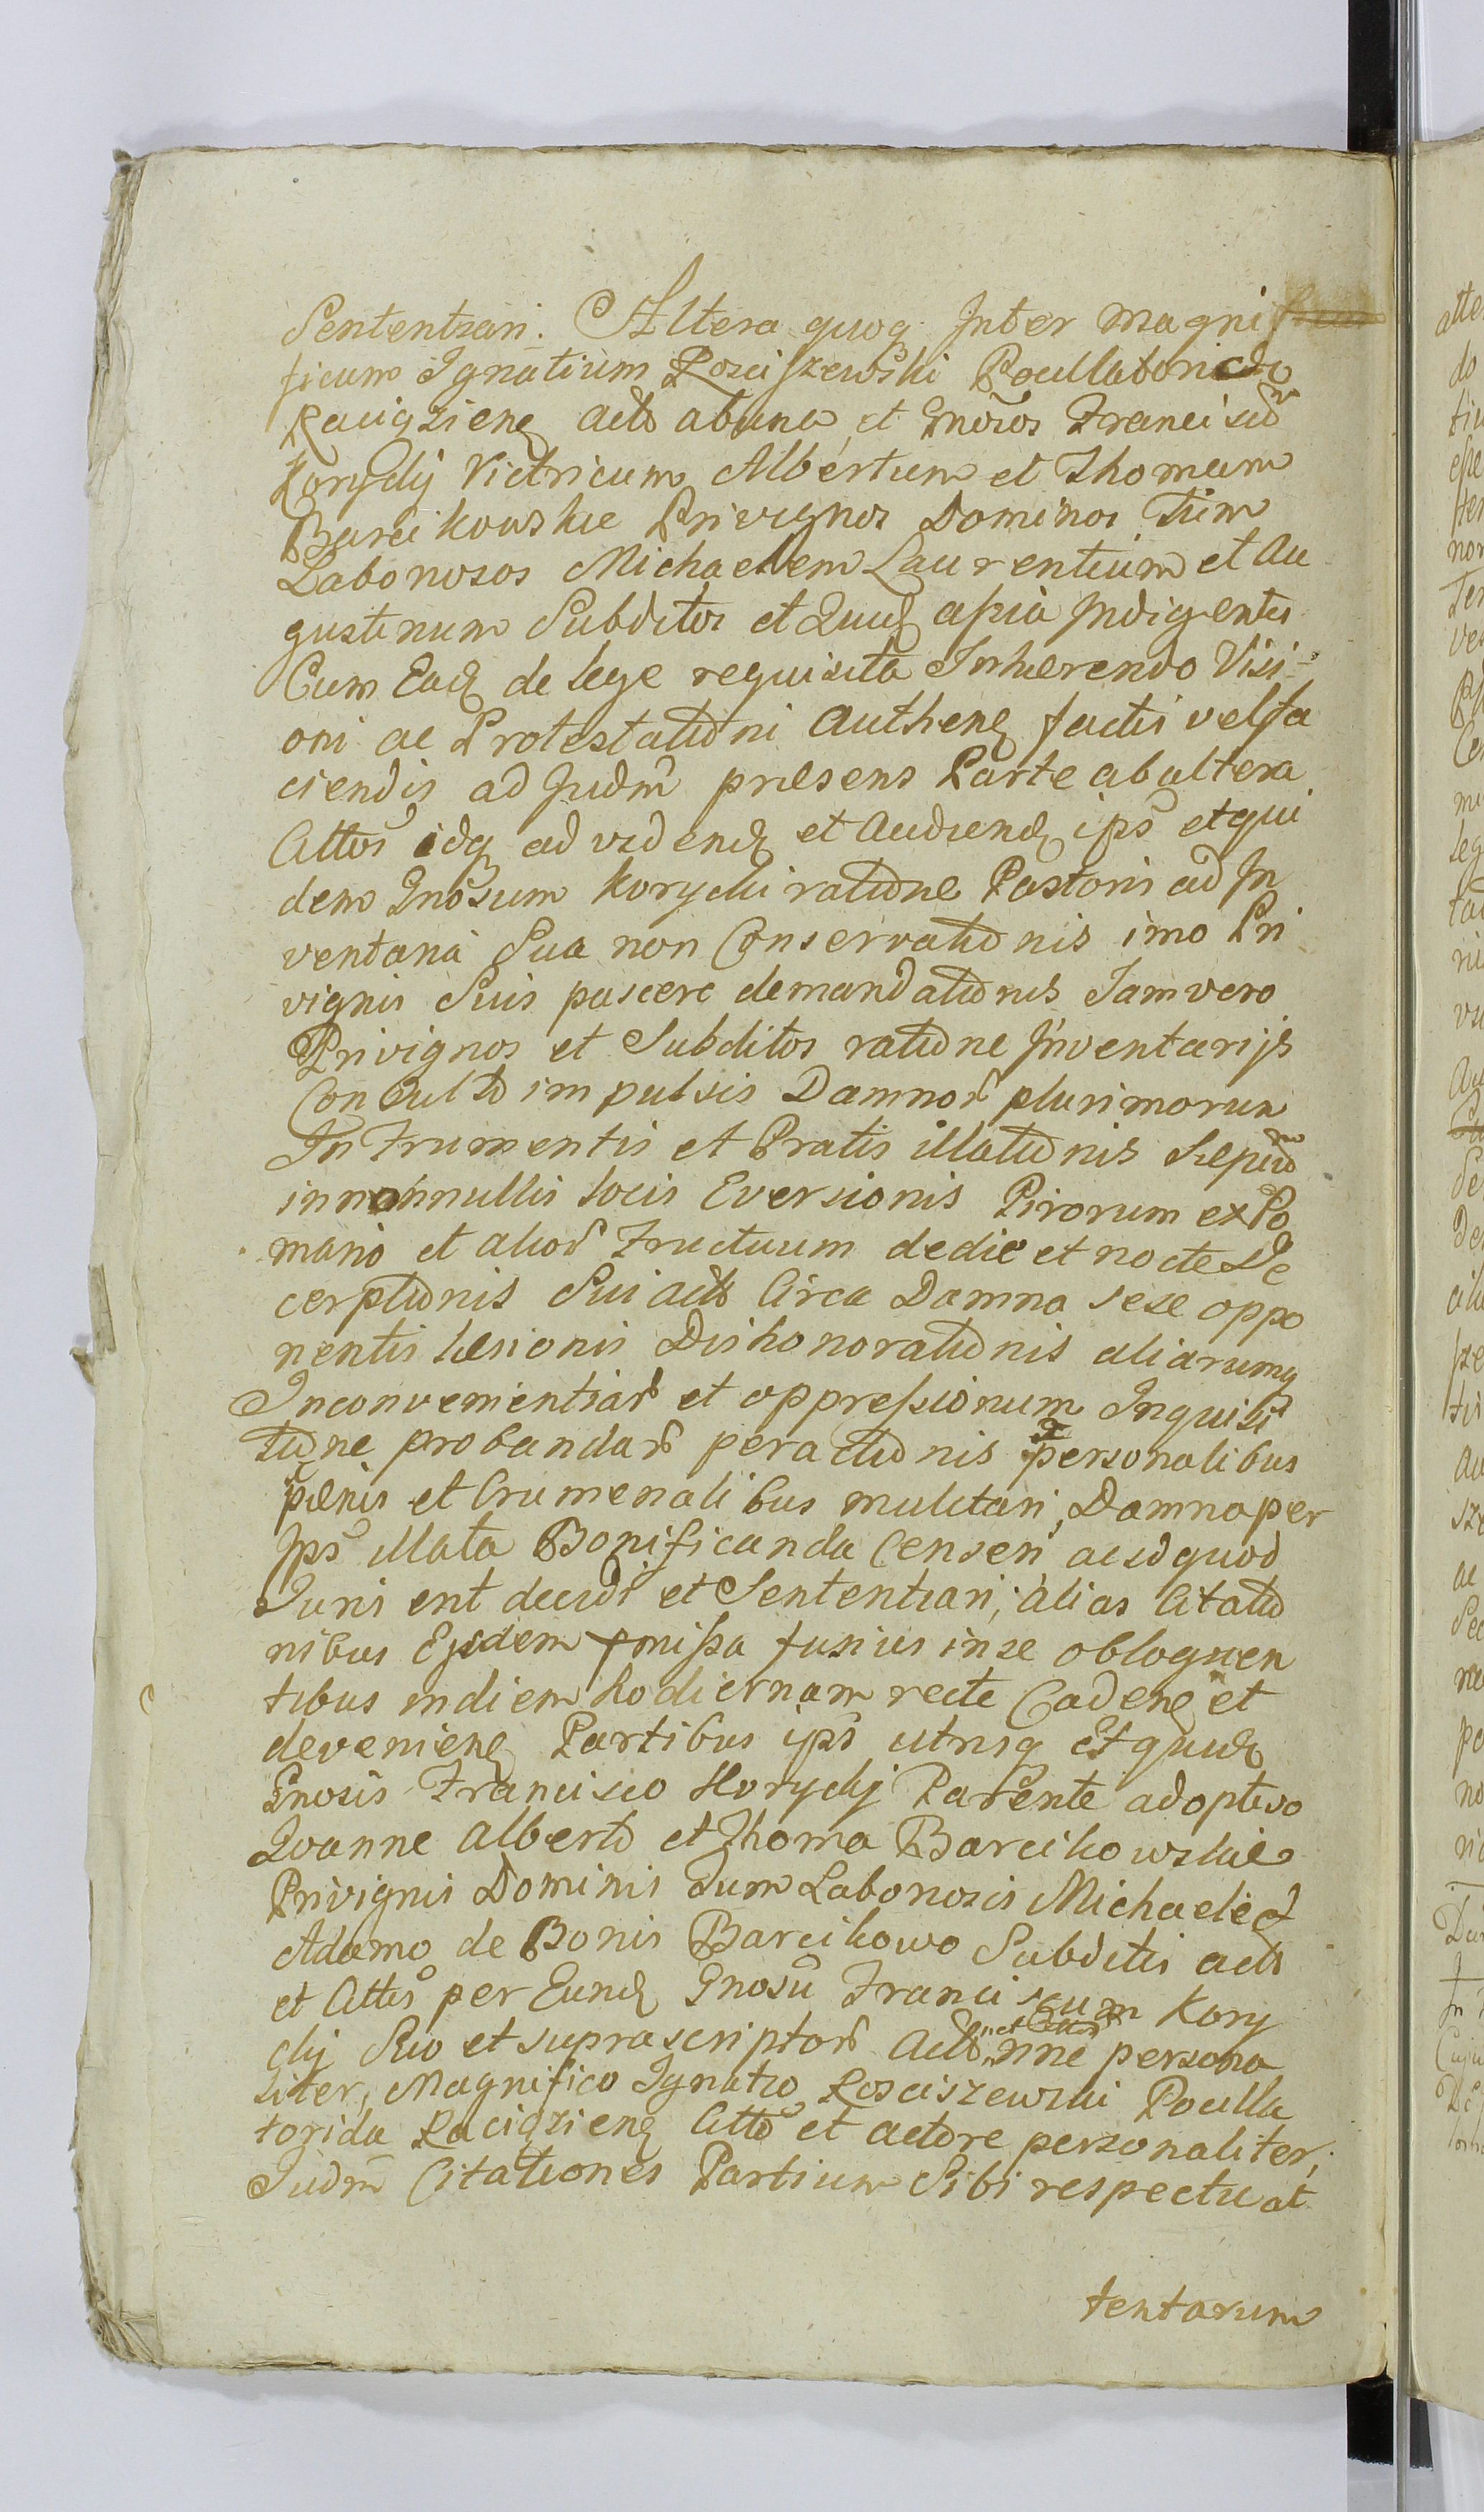 Sententiari. Altera quoq Inter Magni
ficum Ignatium Rosciszewski Pocillatoridę
Raciązienę acto ab una et Gnosos Francisco
Korycky Victricum Albertum et Thomam
Barcikowskie Privignos Dominos Tum
Laboriosos Michaelem Laurentium et Au
gustinum Subditos et Quidę apia Indigentes
Cum Eadę de lege requisita Inhærendo Visi-
oni ac Protestationi Authenę factis vel fa
ciendis ad Judm præsens Parte ab altera
Cittos idq ad videndę et Audiendę ips et qui
dem Gnosum Korycki ratione Pastoris ad In
ventaria Sua non Conservationis imo Pri
vignis Suis pascere demandationis Iam vero
Privignos et Subditos ratione Inventarijs
Consulto impulsis Damnor plurimorum
In Frumentis et Pratis illationis Sæpium
in nonnullis locis Eversionis Pirorum ex Po
mario et alior Fructuum de die et nocte De
cerptionis Sui acto Circa Damna sese oppo
nentis læsionis Dishonorationis aliarumq
Inconvenientiar et oppressionum Inquisi
tione probandar peractionis personalibus
pænis et Crumenalibus mulctari, Damna per
Ips illata Bonificanda Censeri ac id quod
Juris erit decidi et Sententiari, alias Citatio
nibus Ejsdem pmissa fusius in se obloquen
tibus in diem hodiernam recte Cadenę et
devenienę Partibus ips utrisq Et quidę
Gnosis Francisco Korycky Parente adoptivo
Ioanne Alberto et Thoma Barcikowskie
Privignis Dominis Tum Laboriosis Michaele et
Adamo de Bonis Barcikowo Subditis acto
et Cittis per Eundę Gnosum Franciscum Kory
cky Suo et suprascriptor acto et Citor nne persona
liter, Magnifico Ignatio Rosciszewski Pocilla
torida Raciązienę Citto et actore personaliter,
Judm Citationes Partium Sibi respectu at
tentarum